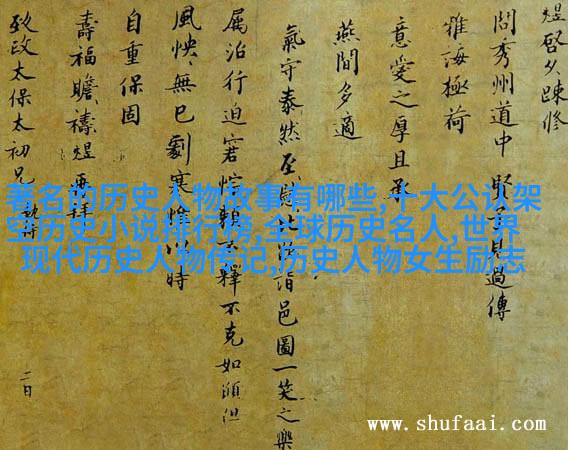 煜啓久疎修
問秀州道中賢見過傳
雅海極荷
意愛之厚且承
燕間多適
氣守泰然至慰詣邑圖一笑之樂
属治行迫窘釋不克如頋但
風怏、無已劇寒以時
自重保固
壽福瞻禱煜再拜
政太保太初兄
二日
著名的历史人物故事有哪些,十大公认架
空历史小说排行榜,全球历史名人,世界
现代历史人物传记,历史人物女生励志
www.shufaai.com